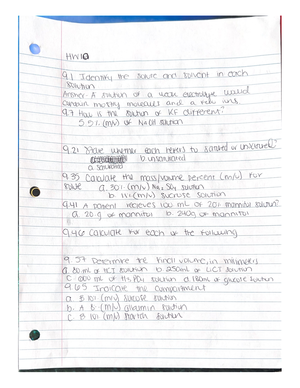 HW10
9.1 Identify the solute and solvent in each
solution
Answer- A solution of a weak electrolyte would
contain mostly molecules and a few ions
9.7 How is the solution of KF different?
5.5% (m/v) of NaOH solution
9.21 State whether each refers to saturated or unsaturated?
b. unsaturated
a. saturated
9.35 Calculate the mass/volume percent (m/v) for
a. 30% (m/v) Na2SO4 solution
(m/v) sucrose solution
9.41 A patient receives 100 mL of 20% mannitol solution?
a. 20 g of mannitol b. 240g of mannitol
9.46 Calculate for each of the following
9.57 Determine the final volume, in milliliters
a. 80 mL of HCl solution b. 250mL of LiCl solution
c. 600 mL of H3PO4 solution d. 180mL of glucose solution
9.65 Indicate the compartment
a. B 10% (m/v) sucrose solution
b. A 8% (m/v) albumin solution
c. B 10% (m/v) starch solution